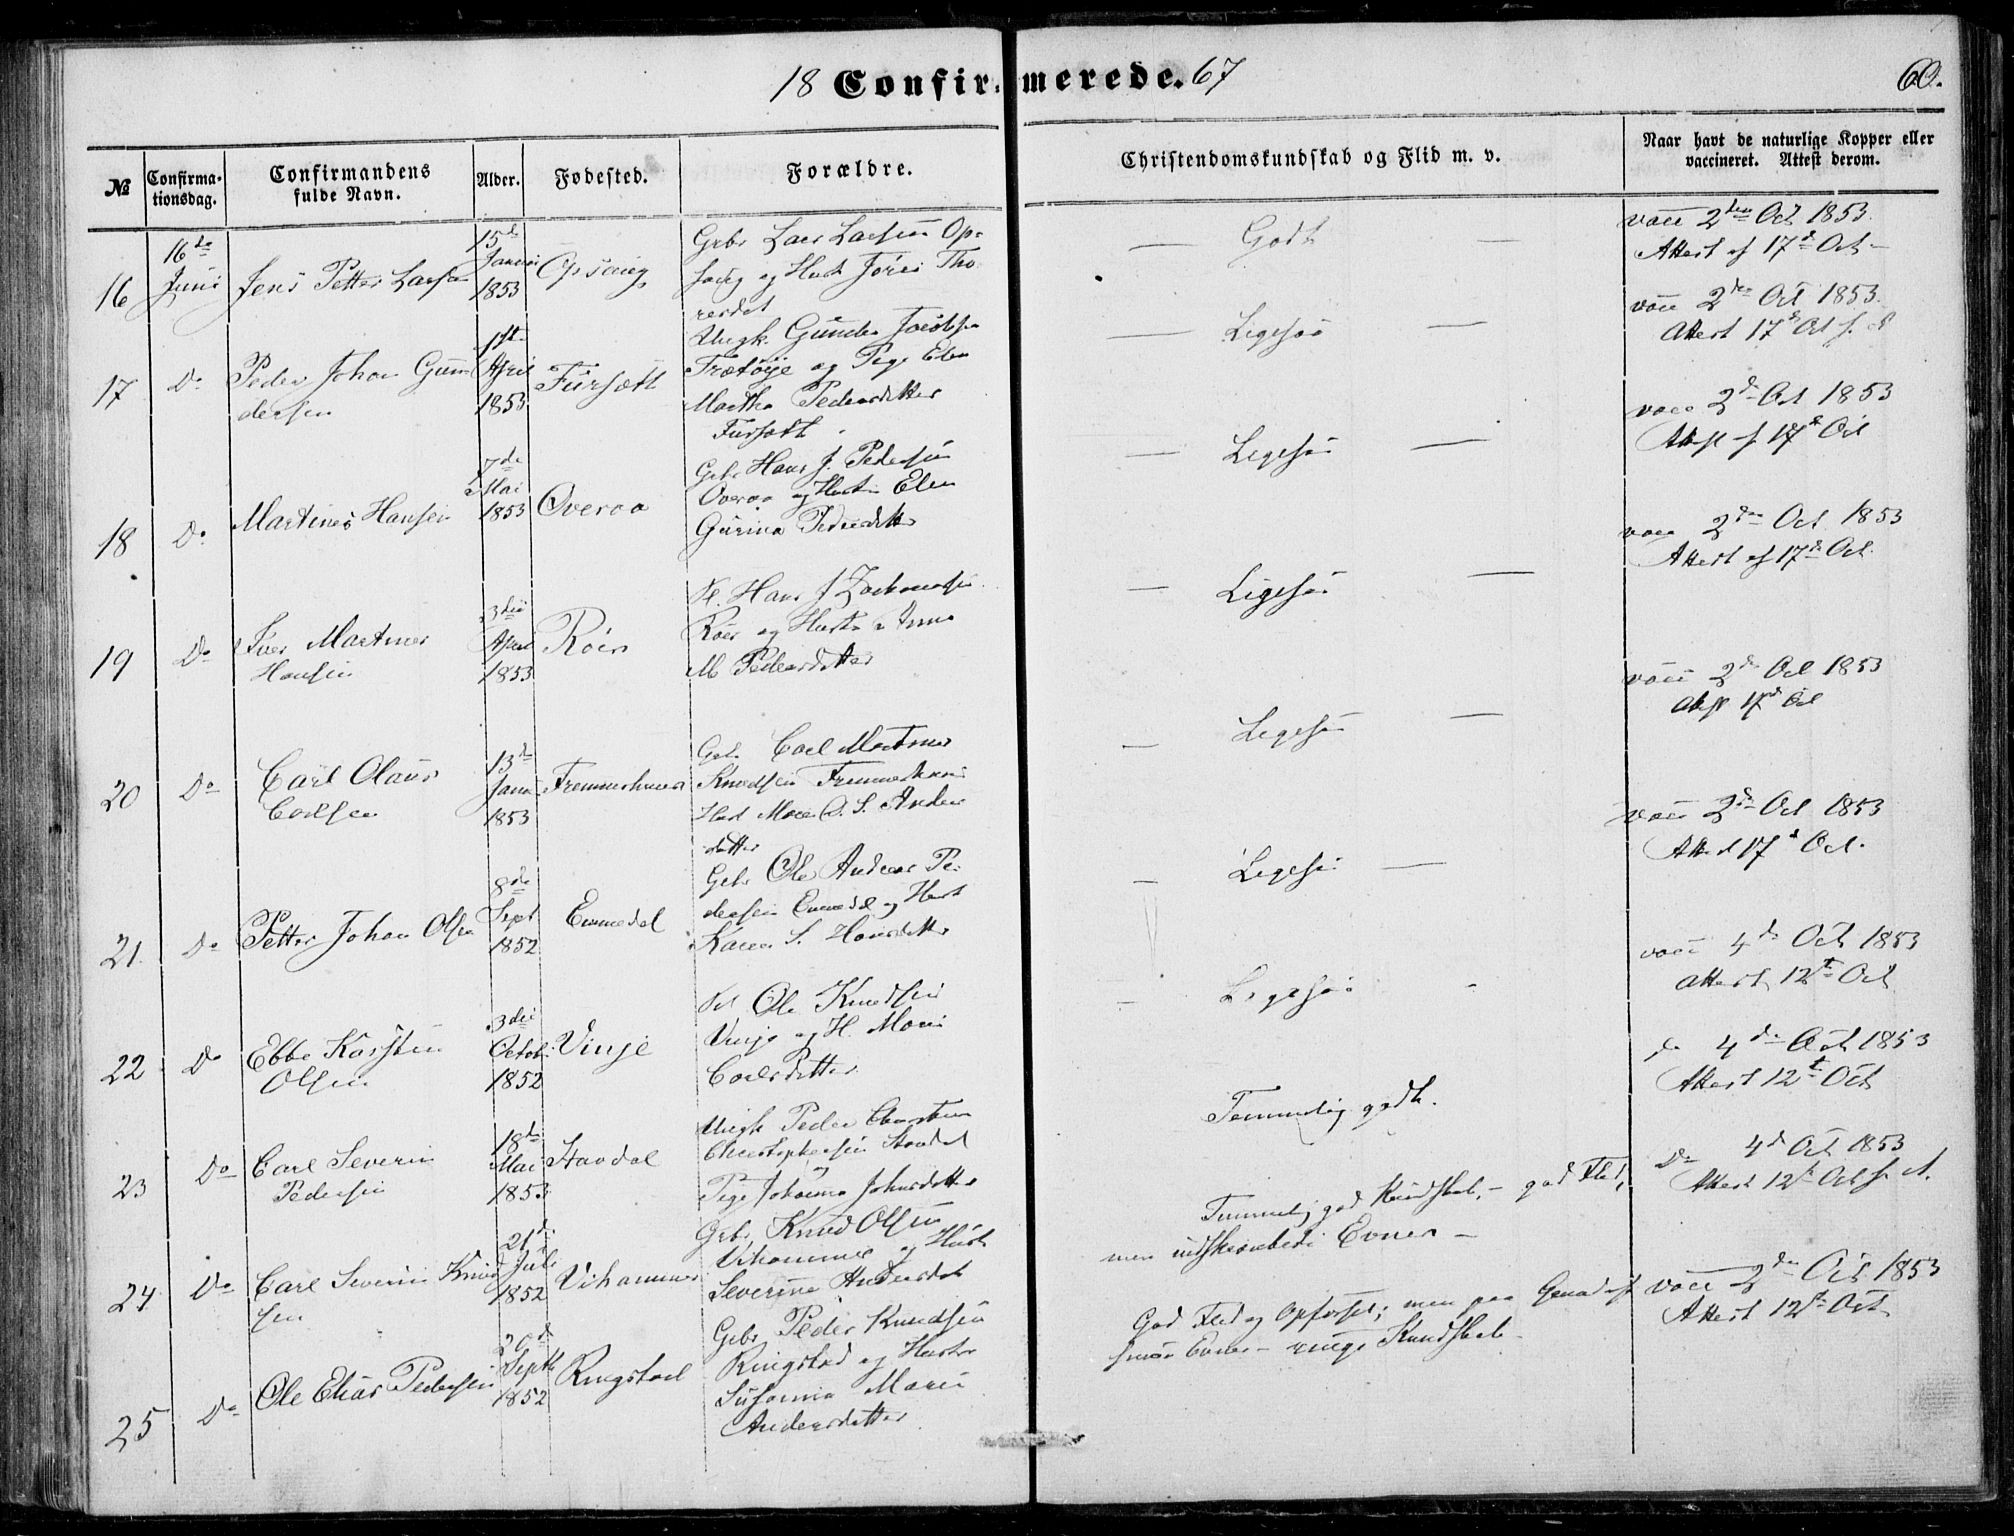 18 Confirmerede. 67
60.
No
Confirmationsdag.
Confirmandens fulde Navn.
Alder.
Fødested.
Forældre.
Christendomskundskab og Flid m. v.
Naar havt de naturlige Kopper eller vaccineret. Attest derom.
16
16de Juni
Jens Petter Larsen
15de Januar 1853
Opsoug
Gbr Lars Larsen Op-
soug og Hust
Godt
vacc 2den Oct 1853
Attest af 17de Oct
17
Do
Peder Johan Gun-
dersen
1ste April 1853
Fursætt
Ungk. Gunder
og Pige Elen
Martha Pedersdatter
Fursætt
Ligesaa
vacc 2den Oct 1853
Attest 17de Oct
18
Do
Martines Hansen
7de Mai 1853
Overaa
Gbr Hans J. Pedersen
Overaa og Hustr Elen
Gurina Pedersdatter
Ligesaa
vacc 2de Oct 1853
17de Oct
19
Do
Iver Martines
Hansen
3die April 1853
Røen
Hans J
og Hustr Anna
M Pedersdatter
Ligesaa
vacc 2den Oct 1853
Attest af 17de Oct
20
Do
Carl Olaus
Carlsen
13de Janu 1853
Fremmerhuus
Gbr Carl Martines
Knudsen
Hust Maren O. S. Anders
datter
Ligesaa
vacc 2de Oct 1853
17de Oct
21.
Do
Petter Johan Olsen
8de Sept 1852
Emmedal
Gbr Ole Andreas Pe-
dersen Emmedal og Hust
Karen S. Hansdatter
Ligesaa
vacc 2de Oct 1853
Attest 17de Oct.
22
Do
Ebbe Karsten
Olsen
3die Octob 1852
Vinje
Ole Knudsen
Vinje og H. Maren
Carlsdatter
Ligesaa
vacc 4de Oct 1853
Attest 12te Oct
23
Do
Carl Severin
Pedersen
18de Mai 1853
Stavdal
Ungk Peder
Christophersen Stavdal
Pige Johanna Johnsdatter
Temmelig godt.
do 4de Oct 1853
Attest 12te Oct
24
Do
Carl Severin Knud
sen
21de Juli 1852
Vihammer
Gbr Knud Olsen
Vihammer og Hust
Severine Andersdat
Temmelig god Kundskab, – god Flid,
men indskrænkede Evner –
Do 4de Oct 1853
Attest 12te Oct
25
Do
Ole Elias Pedersen
20de Septb 1852
Ringstad
Gbr Peder Knudsen
Ringstad og Hustr
Susanna Maren
Andersdatter
God Flid og Opførsel; men paa Grund af
smaa Evner – ringe Kundskab.
vacc 2den Oct 1853
Attest 12te Oct